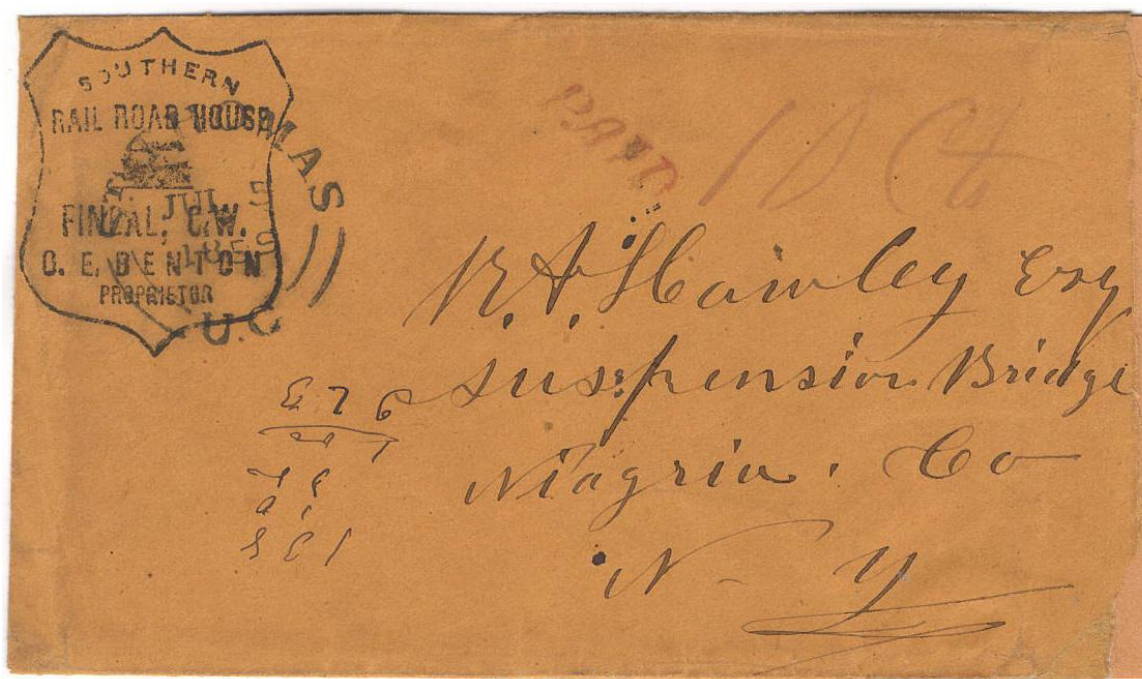 SOUTHERN
RAIL ROAD HOUSE
FINGAL, C.W.
C. E. BENTON
PROPRIETOR
THOMAS
JUL 5
185
U.C
PAID
10 Cts
R. A. Hawley Esq
Suspension Bridge
Niagria. Co
N-Y